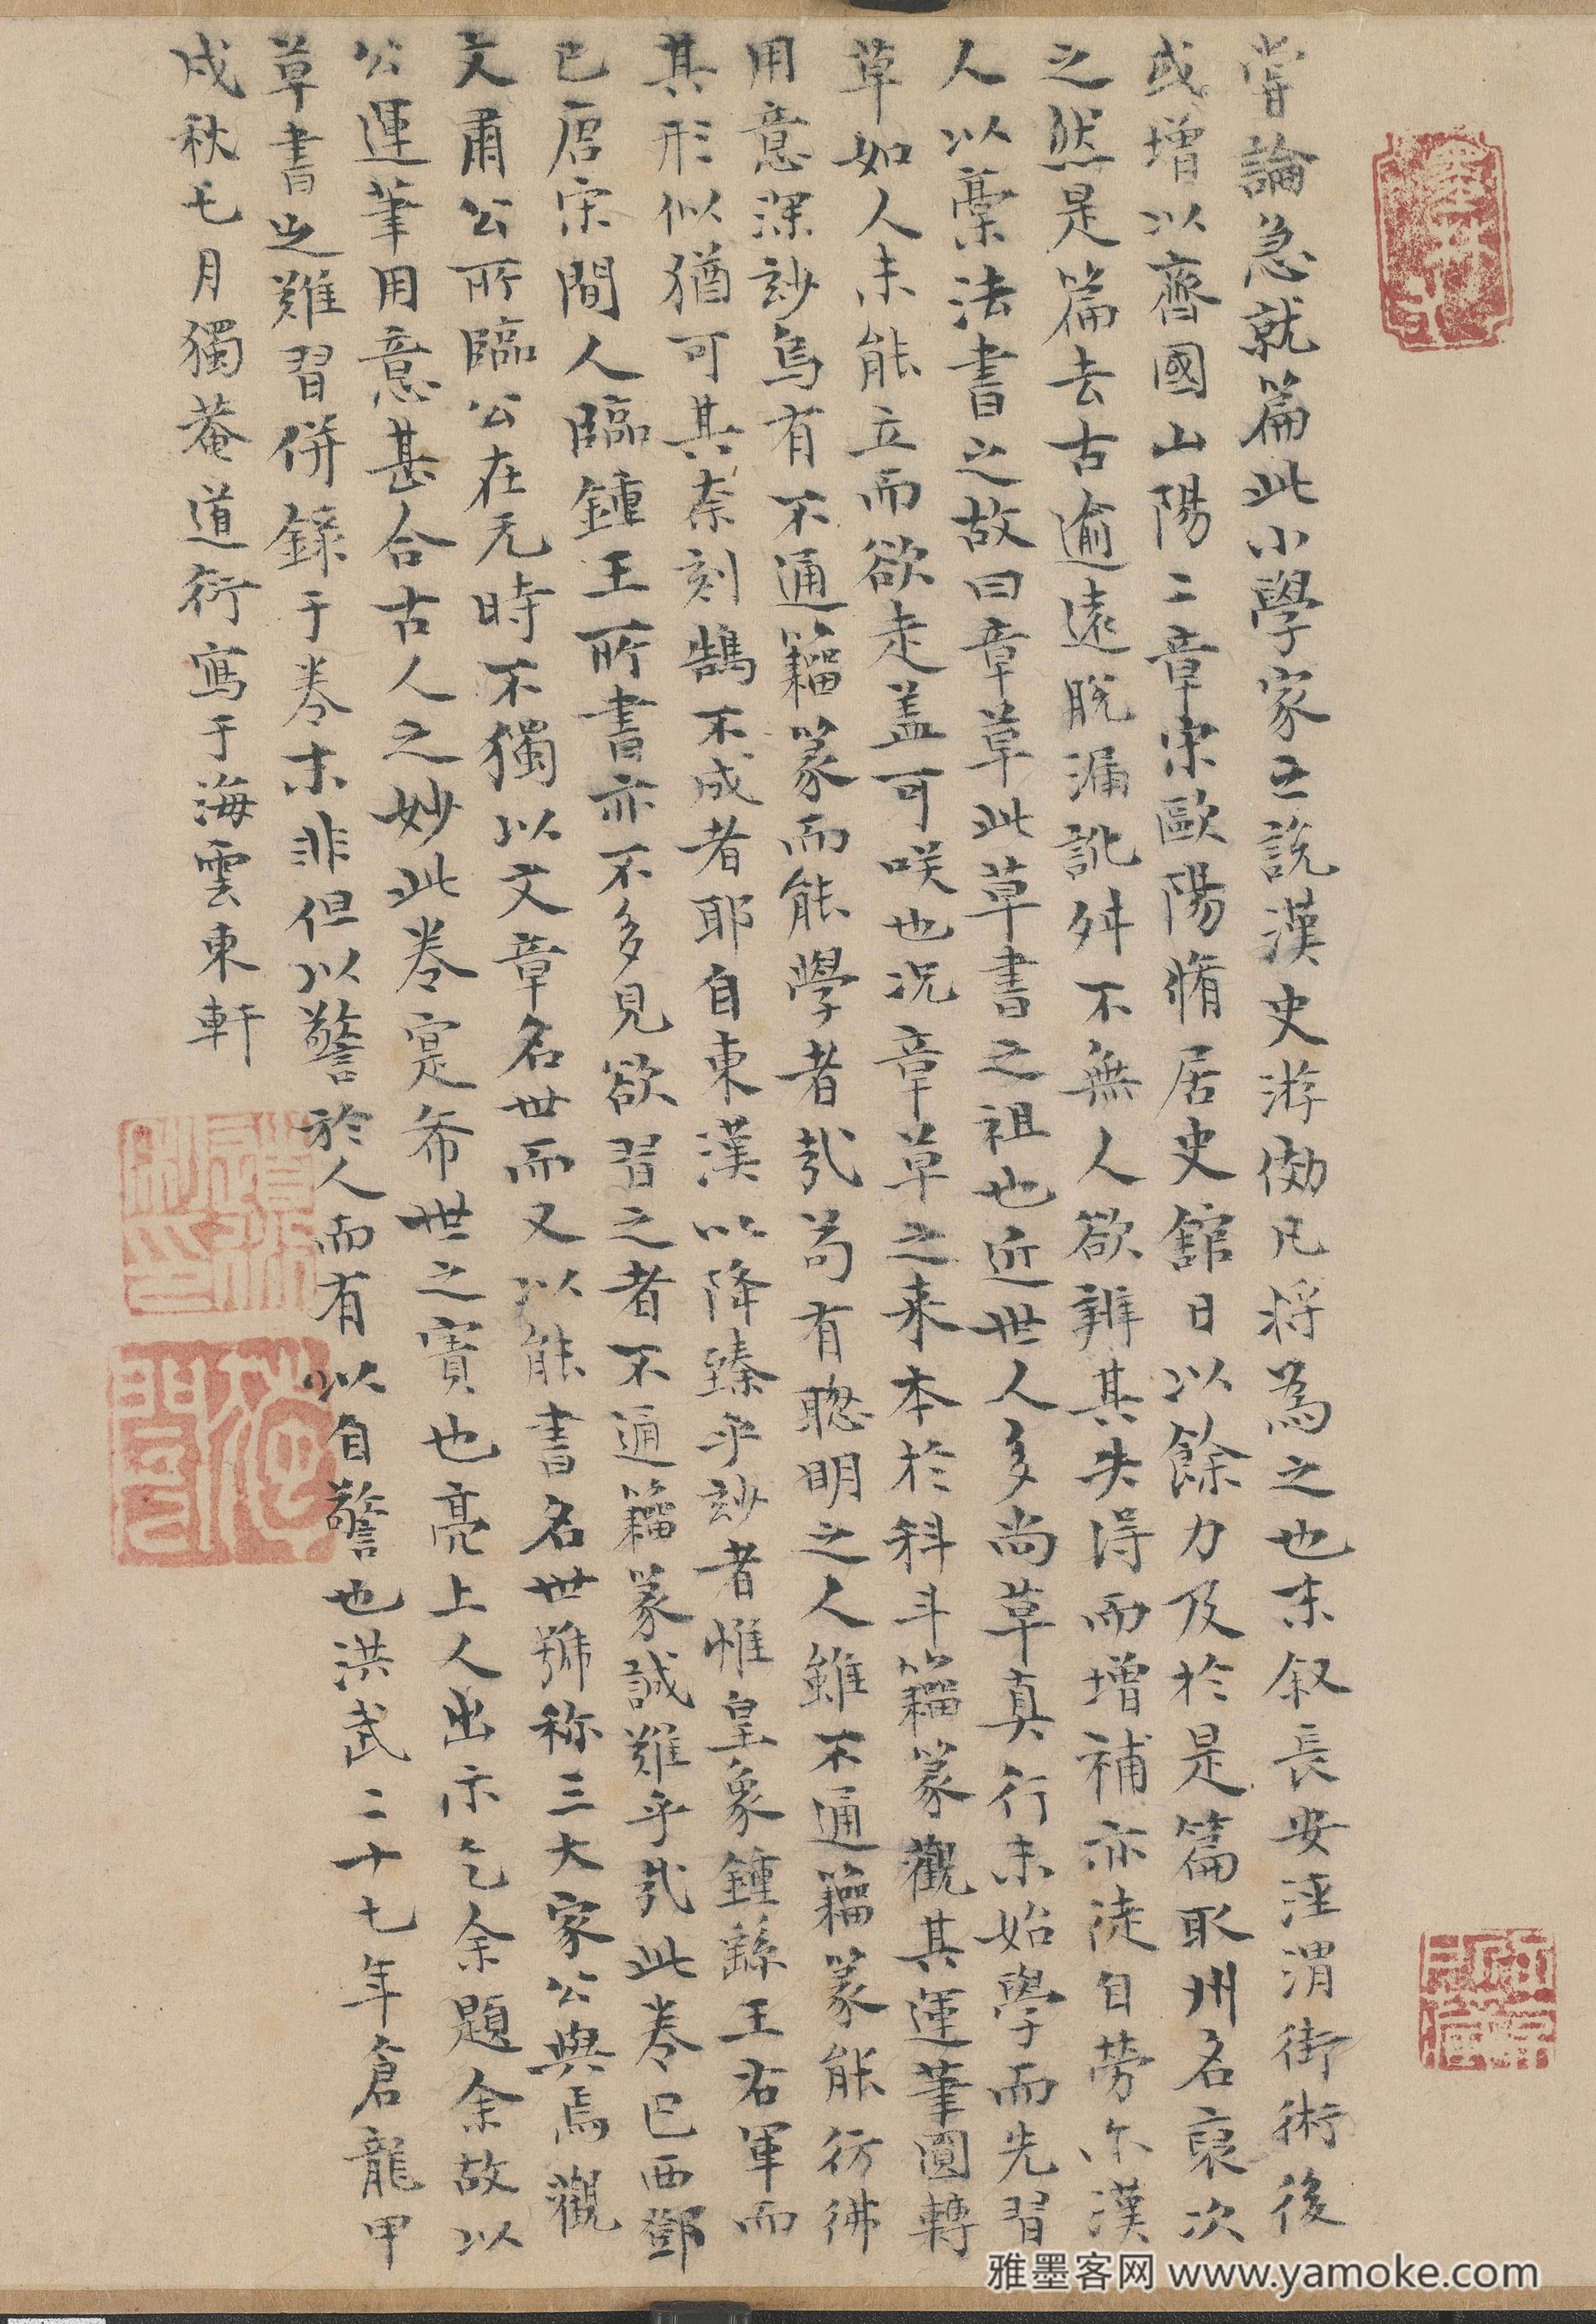 嘗論急就篇此小學家之說漢史游倣凡將為之也末叙長安涇渭街術後
或增以齊國山陽二章宋歐陽脩居史舘日以餘力及於是篇取州名裒次
之然是篇去古逾遠脫漏訛舛不無人欲辨其失得而增補亦徒自勞尔漢
人以稾法書之故曰章草此草書之祖也近世人多尚草真行未始學而先習
草如人未能立而欲走盖可咲也况章草之来本於科斗籀篆觀其運筆圓轉
用意深玅烏有不通籀篆而能學者㢤茍有聦明之人雖不通籀篆能彷彿
其形似猶可其柰刻鵠不成者耶自東漢以降臻乎玅者惟皇象鍾繇王右軍而
已唐宋間人臨鍾王所書亦不多見欲習之者不通籀篆誠難乎㢤此卷巴西鄧
文肅公所臨公在元時不獨以文章名世而又以能書名世號称三大家公與焉觀
公運筆用意甚合古人之妙此卷寔希世之寳也亮上人出示乞余題余故以
草書之難習併錄于卷末非但以警於人而有以自警也洪武二十七年倉龍甲
戌秋七月獨菴道衍寫于海雲東軒
雅墨客网 www.yamoke.com